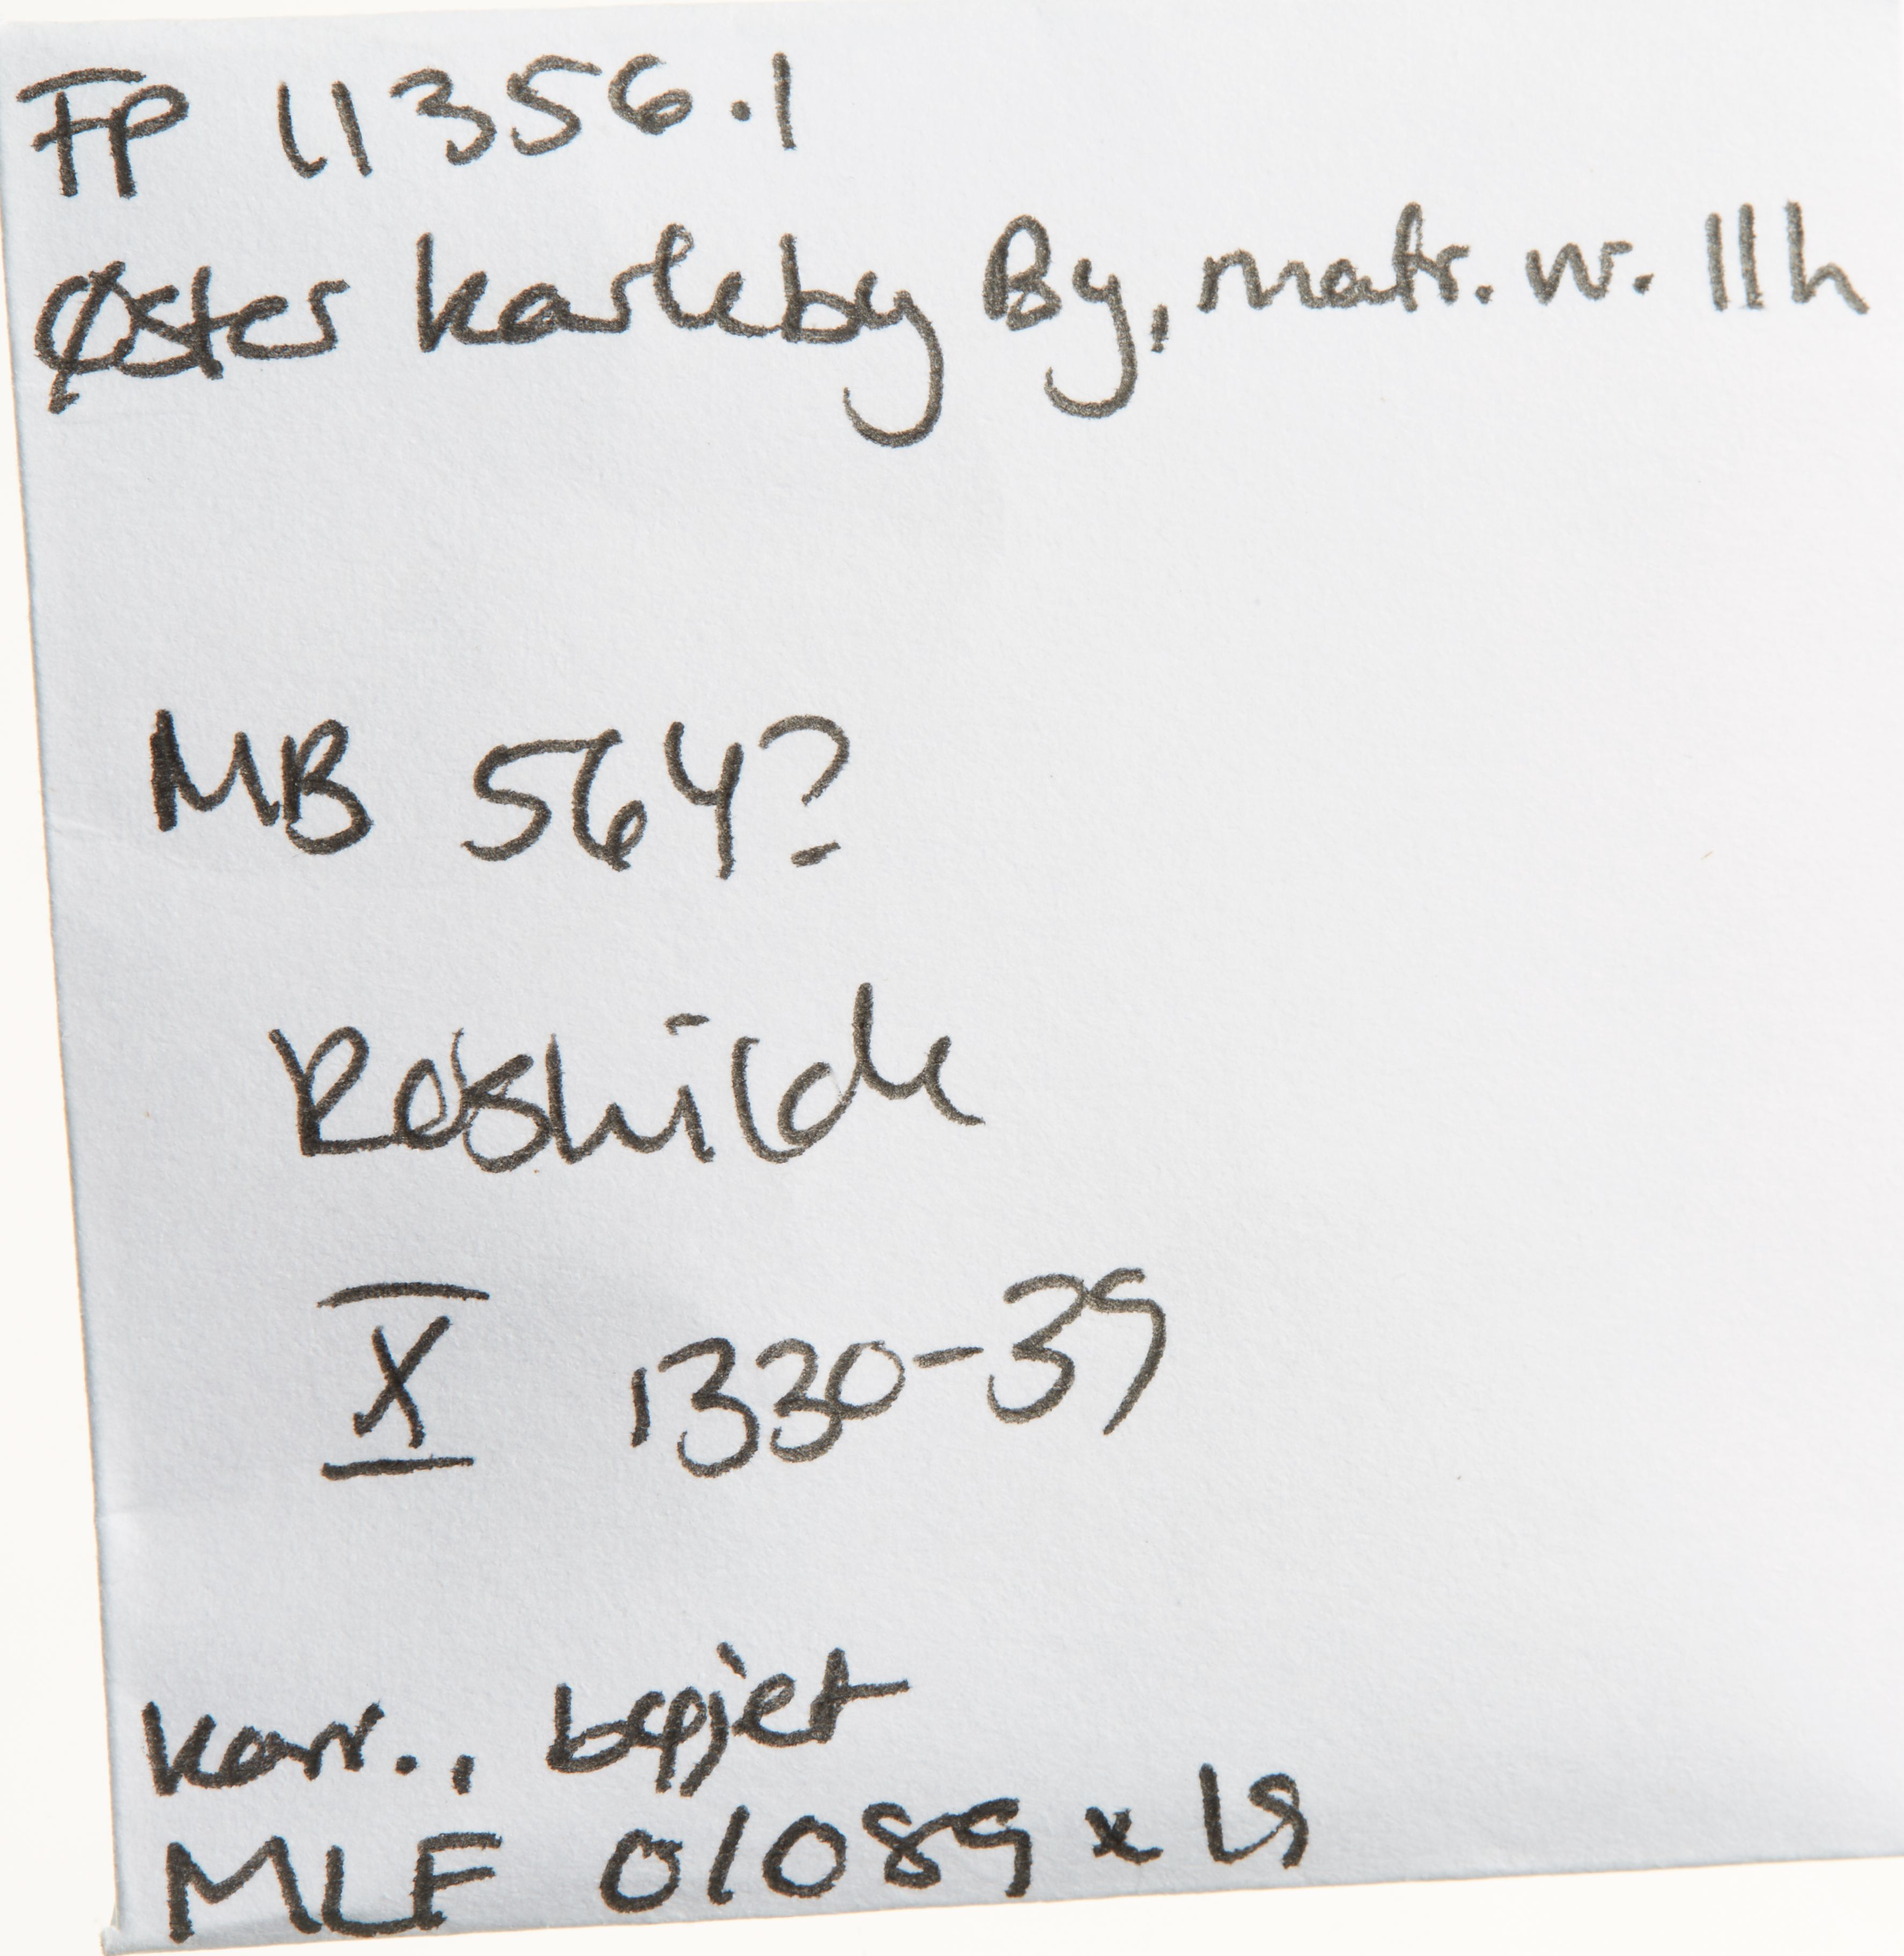 FP 11356.1
Øster Karleby By, matr. nr. 11h
MB 564?
Roskilde
X 1330-39
Korr., bøjet
MLF 01089 x 19